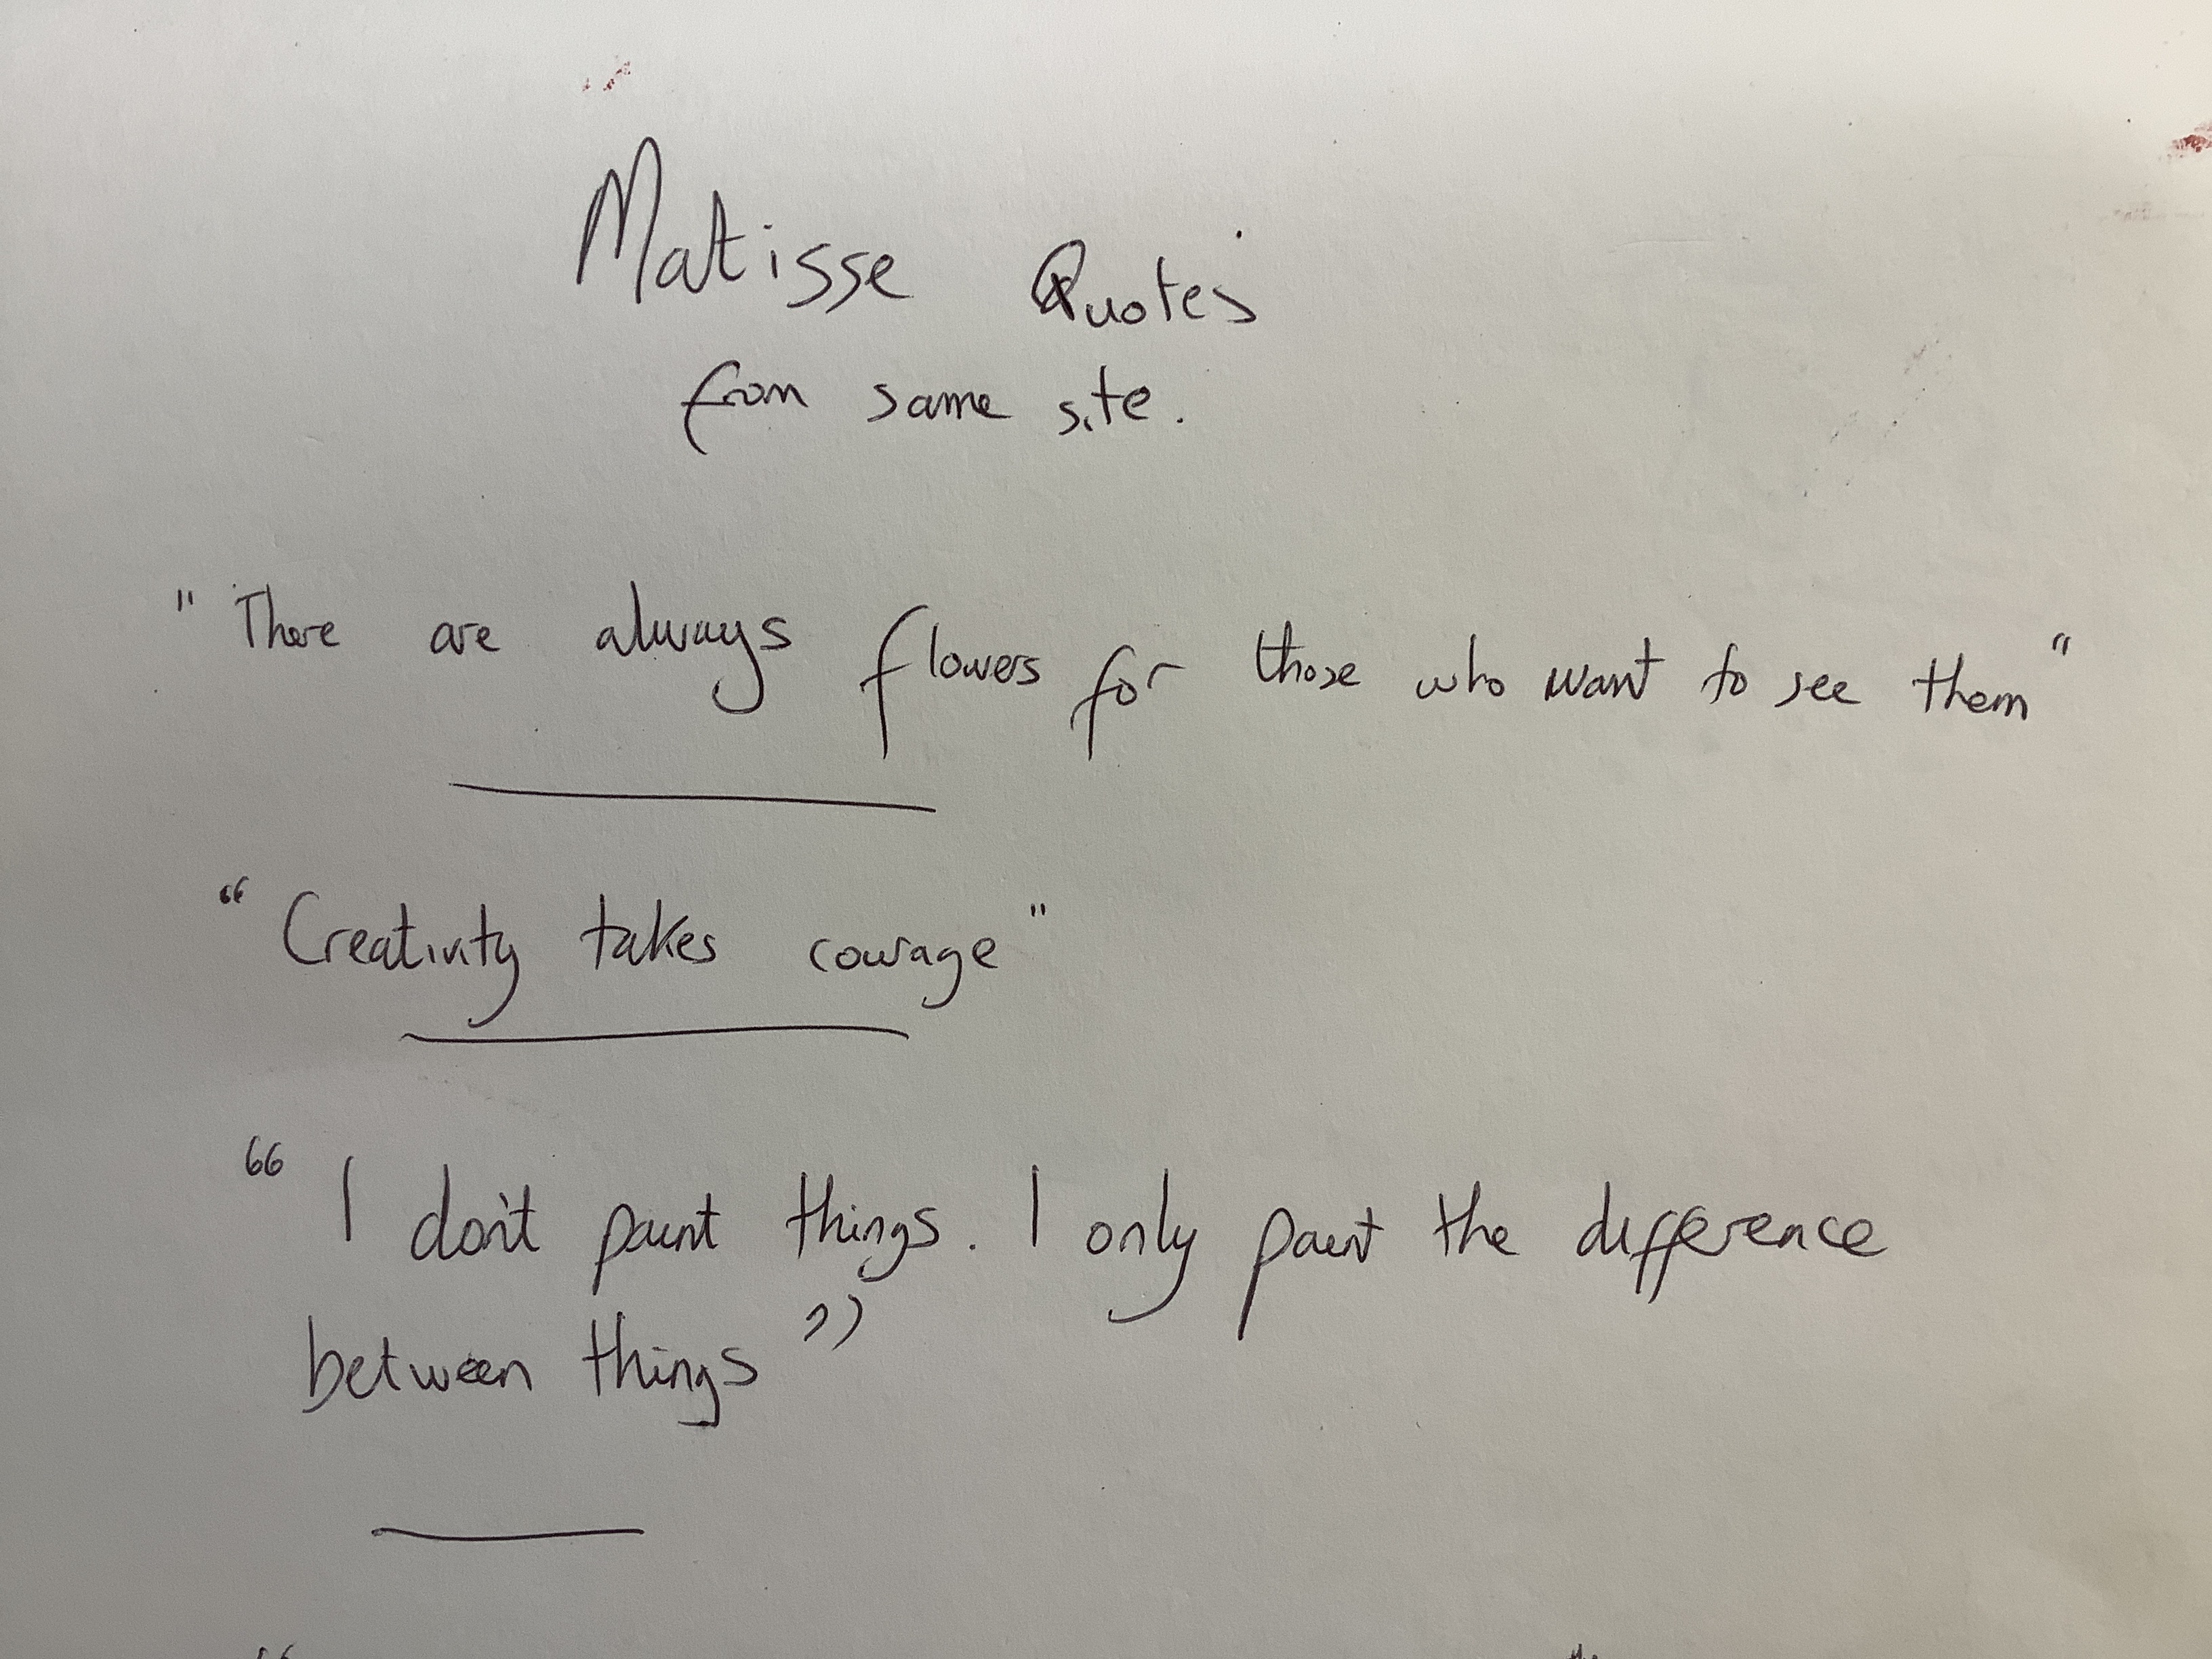 Matisse Quotes
from same site.
"There are always flowers for those who want to see them"
"Creativity takes courage"
"I don't paint things. I only paint the difference
between things"